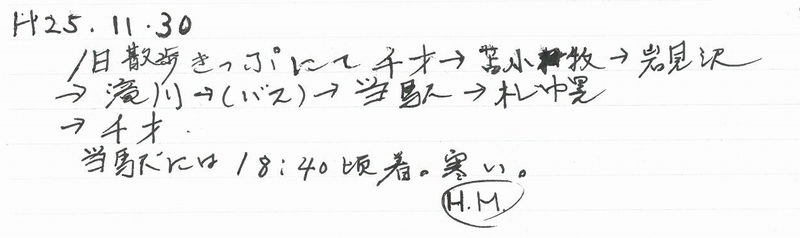 H25.11.30
1日散歩きっぷにて 千才→苫小牧→岩見沢
→滝川→(バス)→当駅→札幌
→千才.
当駅には18:40頃着。寒い。
H.M.